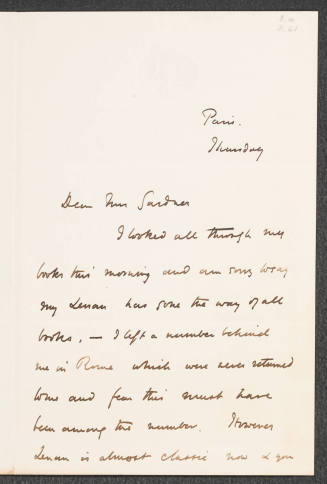 Paris.
Thursday
Dear Mrs Gardner
I looked all through my
books this morning and am sorry to say
my Lenau has gone the way of all
books, — I left a number behind
me in Rome which were never returned
to me and fear this must have
been among the number. However
Lenau is almost classic now & you